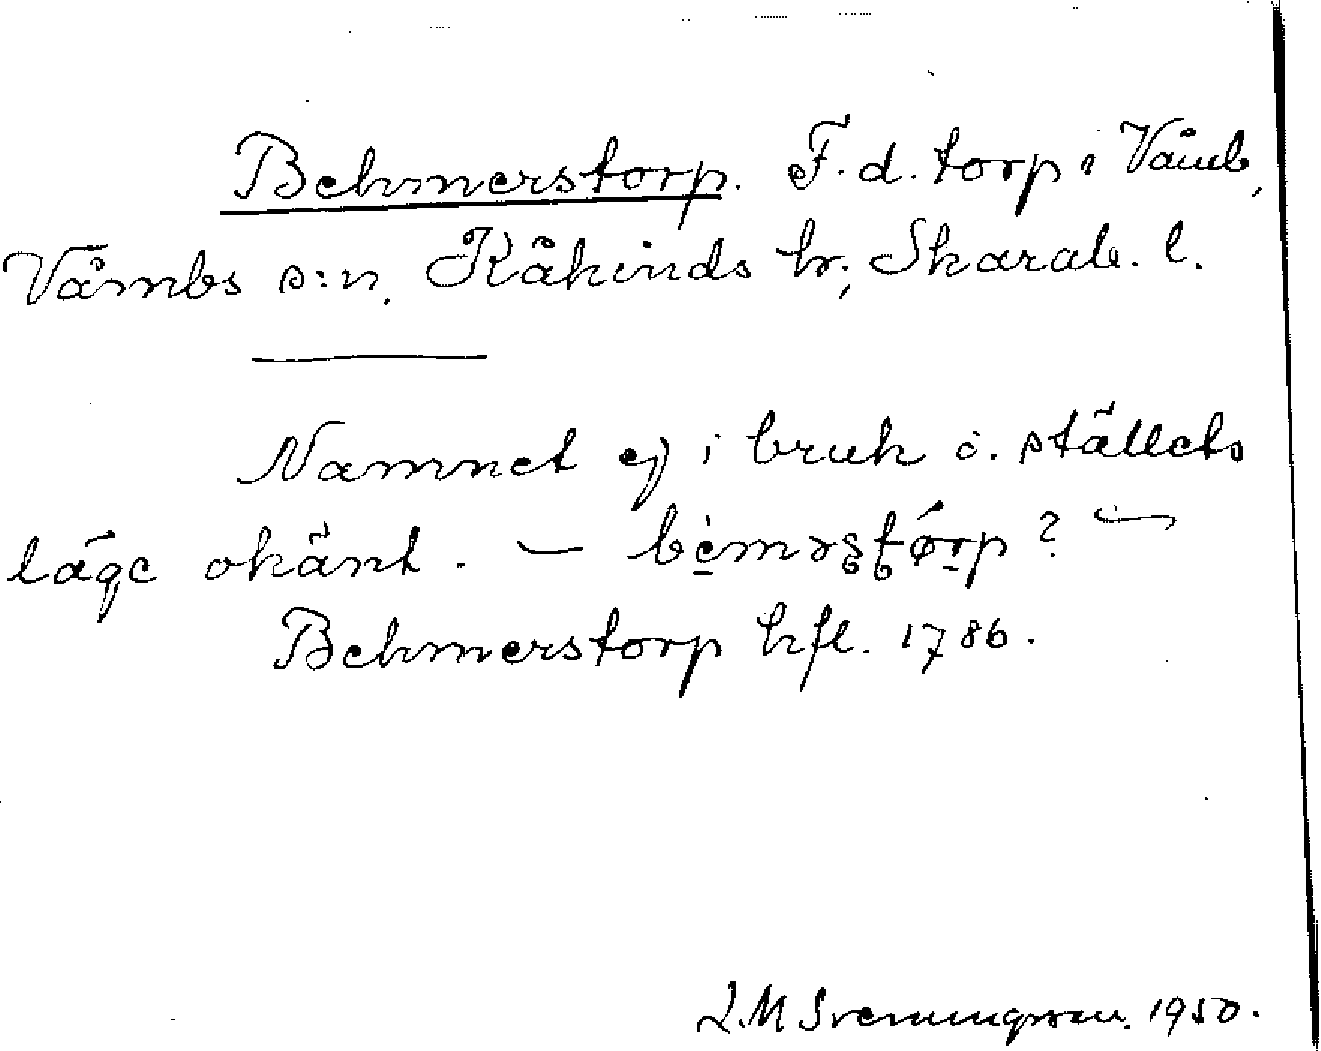 Behmerstorp. F.d. torp i Våmb,
Våmbs s:n, Kåkinds hr, Skarab. l.
Namnet ej i bruk o. ställets
läge okänt. — be̠̍mərsto̠rp? —
Behmerstorp hfl. 1786.
L.M Svenungsson. 1950.